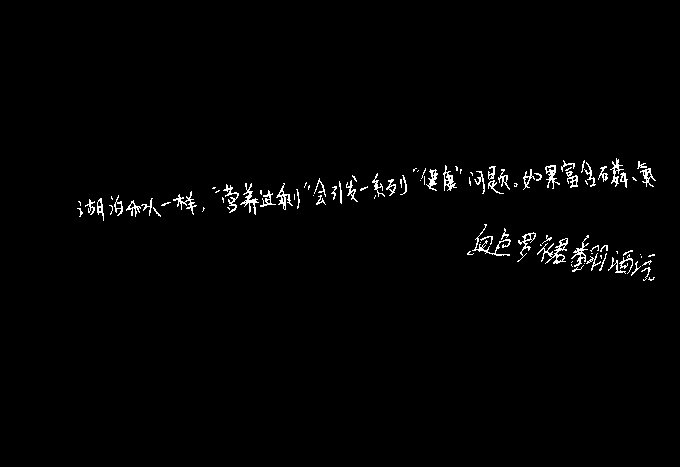 湖泊和人一样，“营养过剩”会引发一系列“健康”问题。如果富含磷、氮
血色罗裙翻酒污